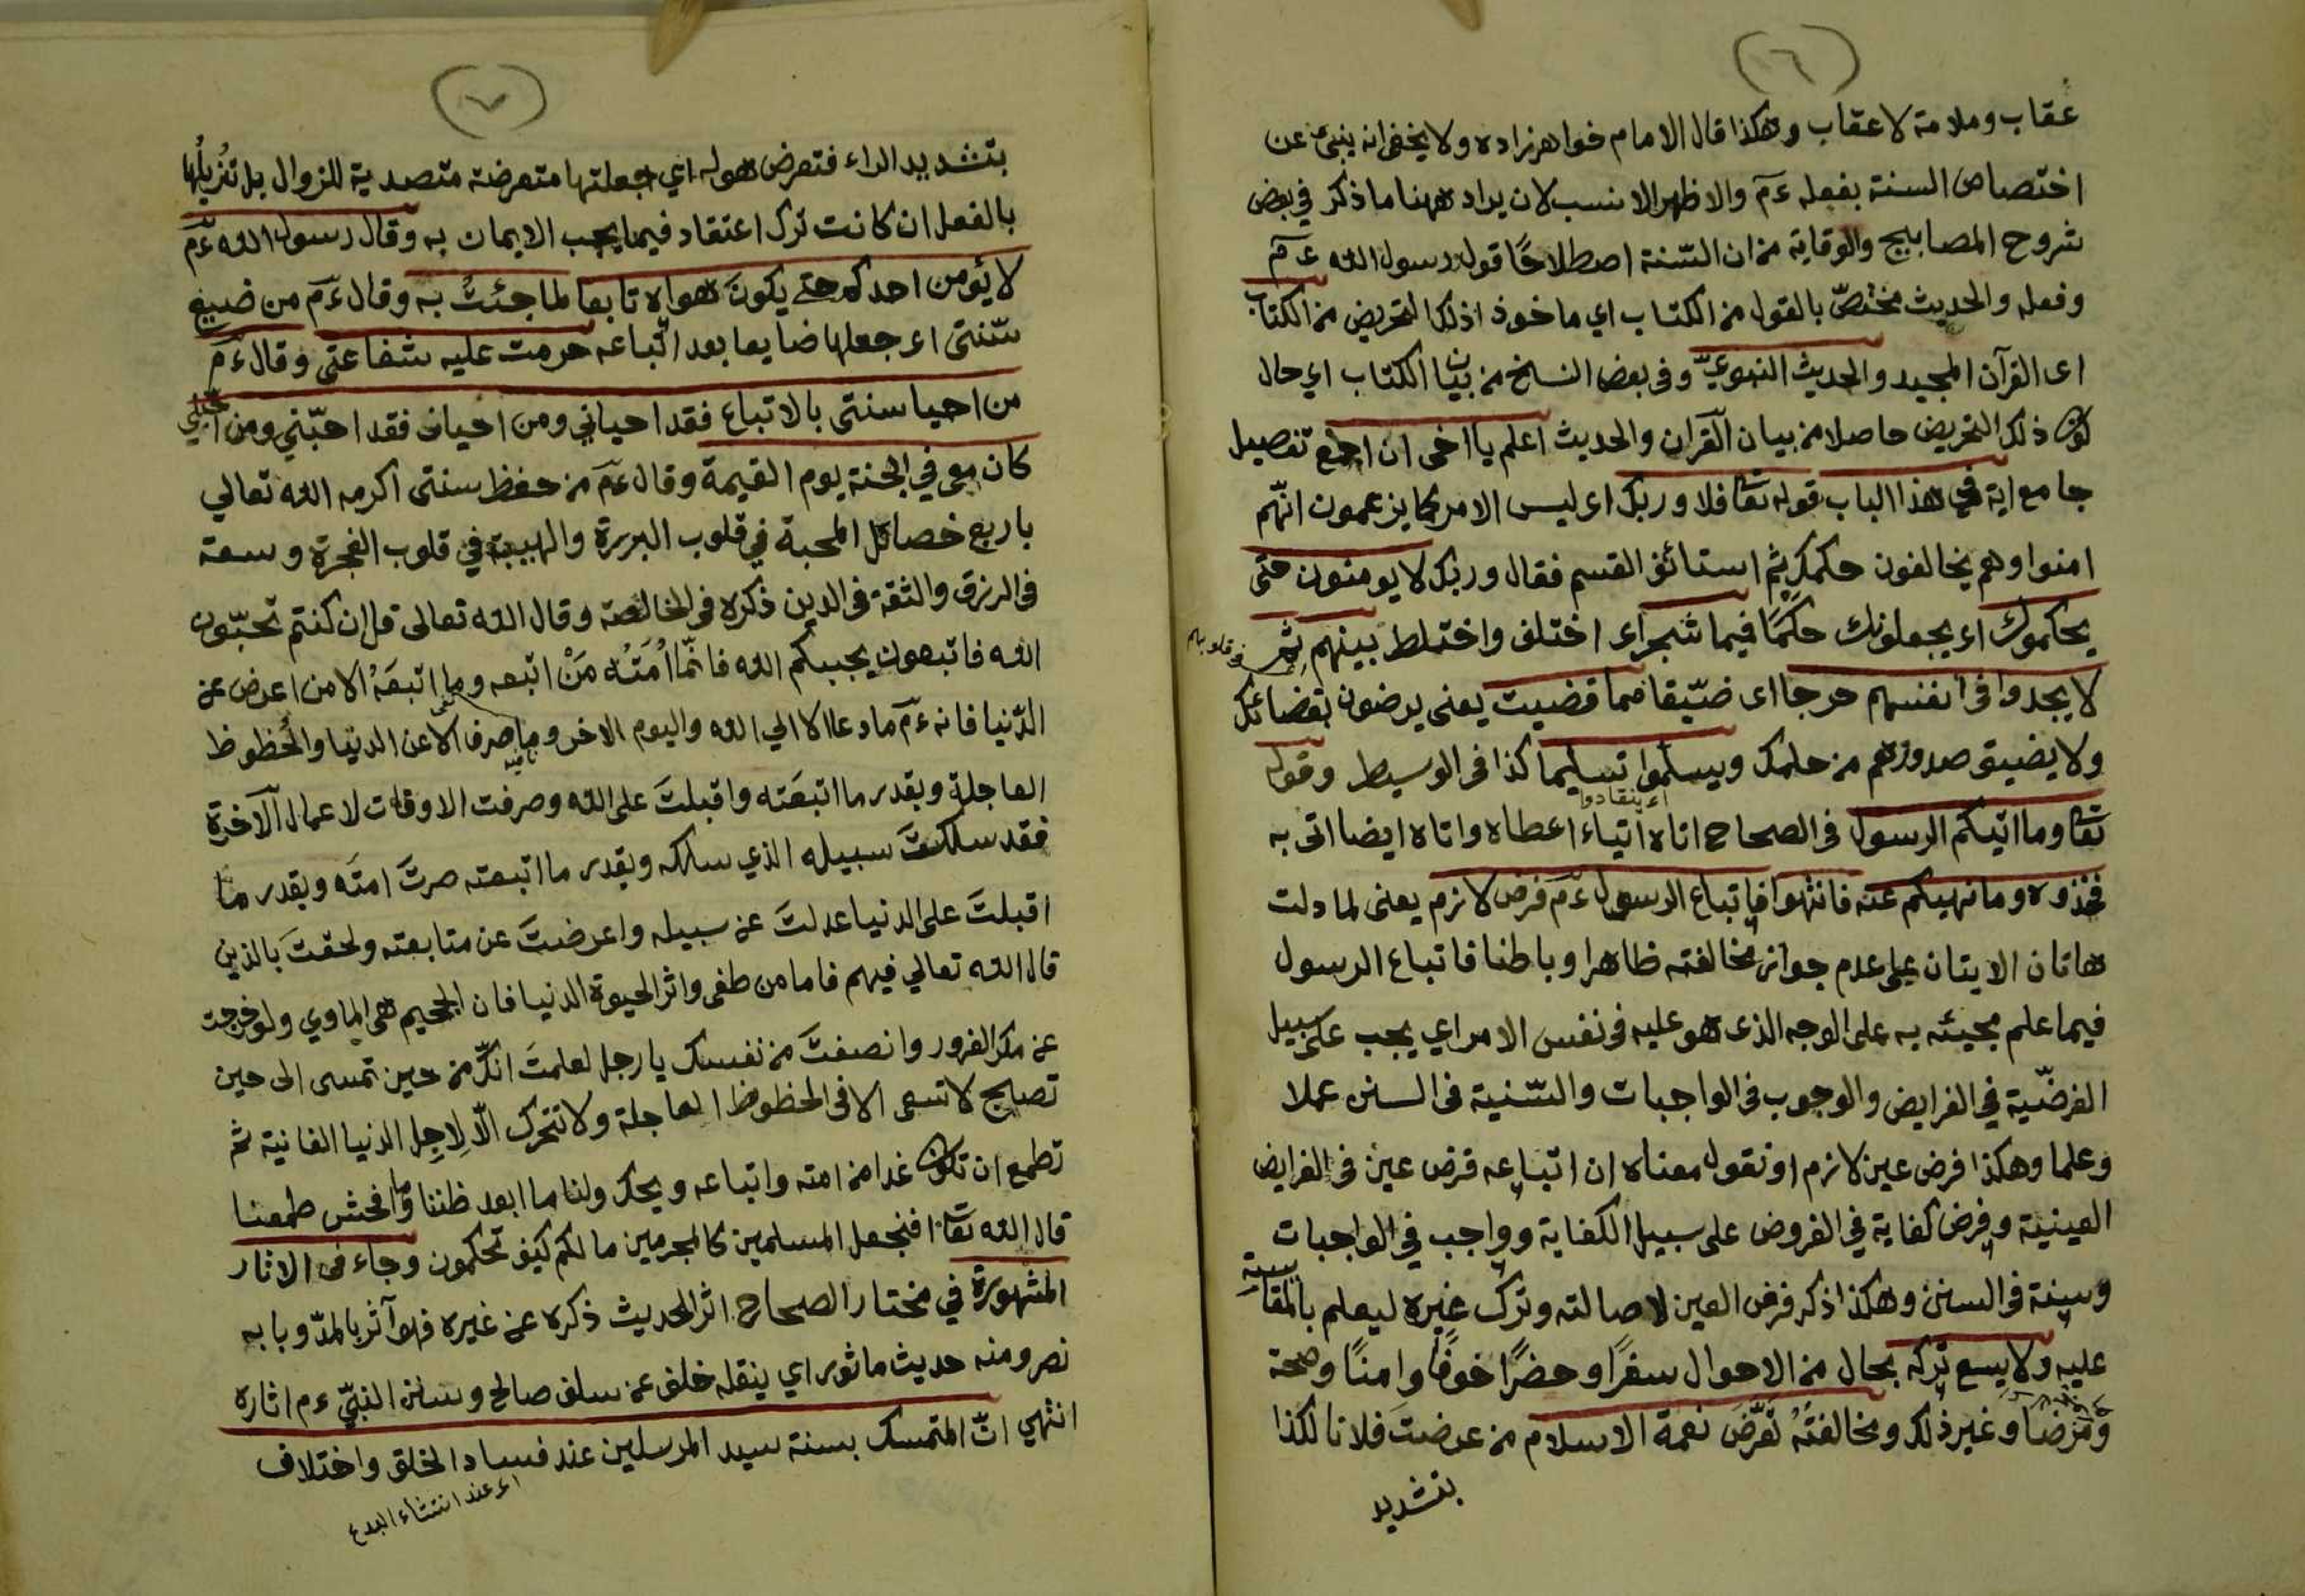 (٦)
عقاب وملامة لا عقاب وهكذا قال الامام خواهرزاده ولا يخفى انه ينبئ عن
اختصاص السنة بفعله ءم والاظهر الانسب لان يراد ههنا ما ذكر في بعض
شروح المصابيح والوقاية من ان السّنة اصطلاحًا قول رسول الله ءم
وفعله والحديث مختصّ بالقول من الكتاب اي ماخوذ اذلك التحريض من الكتاب
اى القرآن المجيد والحديث النبويّ وفى بعض النسخ من بيان الكتاب اي حال
كون ذلك التحريض حاصلا من بيان القرآن والحديث اعلم يا اخى ان اجمع تفصيل
جامع اية في هذا الباب قوله تعا فلا وربك اى ليس الامر كما يزعمون انّهم
امنوا وهم يخالفون حكمك ثم استائف القسم فقال وربك لا يومنون حتى
يحكموك اى يجعلونك حكمًا فيما شجر اى اختلف واختلط بينهم ثم
فى قلوبهم
لا يجدوا فى انفسهم حرجا اى ضيّقا مما قضيت يعنى يرضون بقضائك
ولا يضيق صدورهم من حلمك ويسلموا تسليما كذا فى الوسيط وقوله
اى ينقادوا
تعا وما اتيكم الرسول فى الصحاح اتاه اتياء اعطاه واتاه ايضا اتى به
فخذوه وما نهيكم عنه فانتهوا فاتباع الرسول ءم فرض لازم يعنى لما دلت
هاتان الايتان على عدم جواز مخالفته ظاهرا وباطنا فاتباع الرسول
فيما علم مجيئه به على الوجه الذى هو عليه فى نفس الامر اي يجب على سبيل
الفرضّية في الفرايض والوجوب فى الواجبات والسّنية فى السنن عملا
وعلما وهكذا فرض عين لازم او نقول معناه ان اتباعه فرض عين فى الفرايض
العينية وفرض كفاية في الفروض على سبيل الكفاية وواجب في الواجبات
وسنة فى السنن وهكذا ذكر فرض العين لاصالته وترك غيره ليعلم بالمقايسة
عليه ولا يسع تركه بحال من الاحوال سفرًا وحضرًا خوفًا وامنًا وصحة
ومرضًا وغير ذلك ومخالفتُهُ تُعَرّضُ نعمة الاسلام من عرضتَ فلانا لكذا
بتشديد
(٧)
بتشديد الراء فتعرض هو له اي جعلتها متعرضة متصدية للزوال بل تُزيلُها
بالفعل ان كانت ترك اعتقاد فيما يجب الايمان به وقال رسول الله ءم
لا يؤمن احدكم حتى يكونَ هواه تابعا لما جئتُ به وقال ءم من ضيع
سّنتى اى جعلها ضايعا بعد اتّباعه حرمت عليه شفاعتى وقال ءم
من احيا سنتى بالاتباع فقد احياني ومن احيانى فقد احبّني ومن احبّني
كان معى في الجنة يوم القيمة وقال ءم من حفظ سنتى اكرمه الله تعالي
باربع خصائل المحبة في قلوب البررة والهيبة في قلوب الفجرة وسعة
فى الرزق والثقة فى الدين ذكره فى الخالصة وقال الله تعالى قل ان كنتم تحبّون
الله فاتبعون يحببكم الله فانّما اُمَتُه مَنْ اتبعه وما اتبعَهُ الا من اعرض عن
الدّنيا فانه ءم ما دعا الا الي الله واليوم الاخر وما صرف الا عن الدنيا والحُظوظ
العاجلة وبقدر ما اتبعَته واقبلتَ على الله وصرفت الاوقات لاعمال الآخرة
فقد سلكتَ سبيله الذي سلكه وبقدر ما اتبعته صرتَ امتَه وبقدر ما
اقبلتَ على الدنيا عدلتَ عن سبيله واعرضتَ عن متابعته ولحقتَ بالذين
قال الله تعالي فيهم فاما من طغى واثر الحيوة الدنيا فان الجحيم هى الماوي ولو خرجت
عن مكر الغرور وانصفتَ من نفسك يا رجل لعلمتَ انكّ من حين تمسى الى حين
تصبح لا تسعى الا فى الحظوظ العاجلة ولا تتحرك الّا لِاجِل الدنيا الفانية ثم
تطمع ان تكون غدا من امته واتباعه ويحك ولنا ما ابعد ظننا وما افحش طمعنا
قال الله تعا افنجعل المسلمين كالمجرمين ما لكم كيف تحكمون وجاء فى الاثار
المشهورة في مختار الصحاح اثر الحديث ذكره عن غيره فهو آثر بالمدّ وبابه
نصر ومنه حديث ماثور اي ينقله خلف عن سلف صالح وسنن النبيّ ءم اثاره
انتهي انّ المتمسك بسنة سيد المرسلين عند فساد الخلق واختلاف
اى عند انتشاء البدع